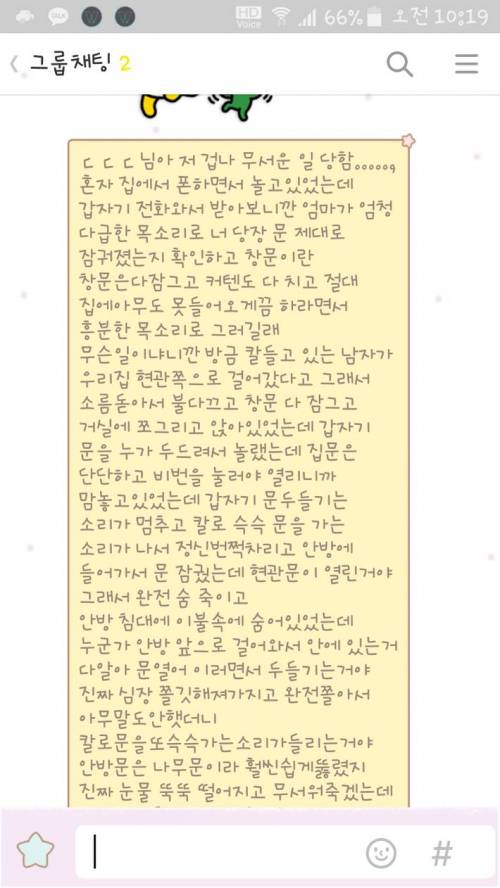 HD Voice 66% 오전 10:19
그룹채팅 2
ㄷㄷㄷ님아 저 겁나 무서운 일 당함......,
혼자 집에서 폰하면서 놀고있었는데
갑자기 전화와서 받아보니깐 엄마가 엄청
다급한 목소리로 너 당장 문 제대로
잠궈졌는지 확인하고 창문이란
창문은다잠그고 커텐도 다 치고 절대
집에아무도 못들어오게끔 하라면서
흥분한 목소리로 그러길래
무슨일이냐니깐 방금 칼들고 있는 남자가
우리집 현관쪽으로 걸어갔다고 그래서
소름돋아서 불다끄고 창문 다 잠그고
거실에 쪼그리고 앉아있었는데 갑자기
문을 누가 두드려서 놀랬는데 집문은
단단하고 비번을 눌러야 열리니까
맘놓고있었는데 갑자기 문두들기는
소리가 멈추고 칼로 슥슥 문을 가는
소리가 나서 정신번쩍차리고 안방에
들어가서 문 잠궜는데 현관문이 열린거야
그래서 완전 숨 죽이고
안방 침대에 이불속에 숨어있었는데
누군가 안방 앞으로 걸어와서 안에 있는거
다알아 문열어 이러면서 두들기는거야
진짜 심장 쫄깃해져가지고 완전쫄아서
아무말도안햇더니
칼로문을또슥슥가는소리가들리는거야
안방문은 나무문이라 훨씬쉽게뚫렸지
진짜 눈물 뚝뚝 떨어지고 무서워죽겠는데
#